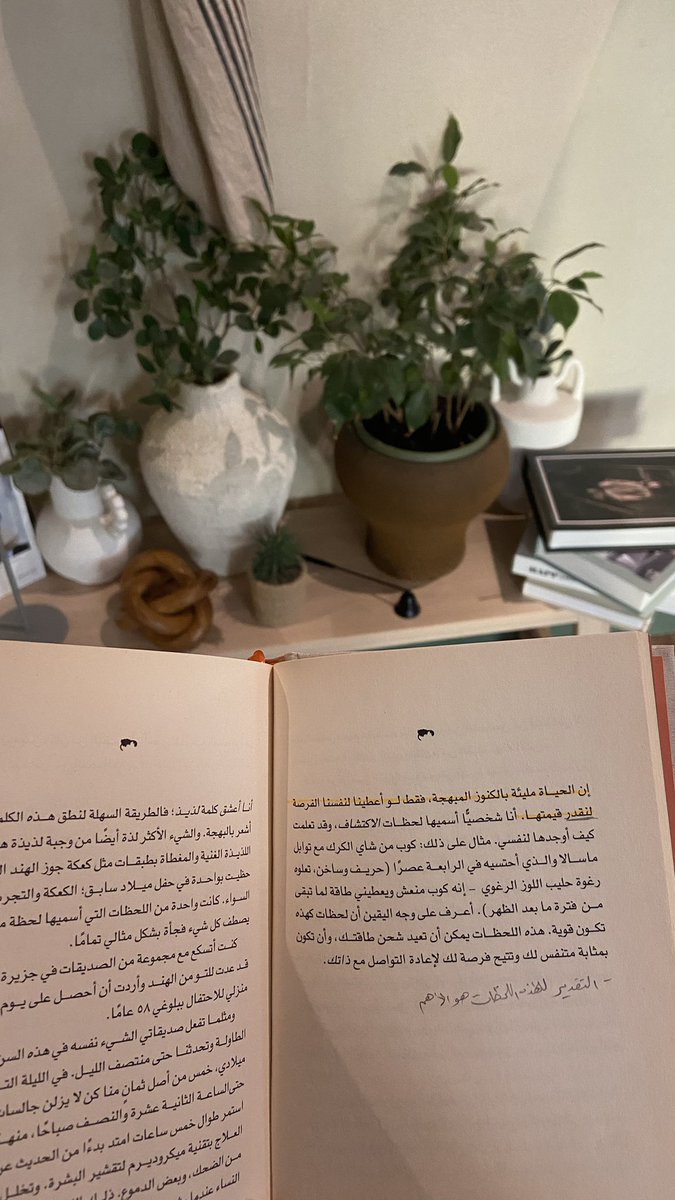 إن الحياة مليئة بالكنوز المبهجة، فقط لو أعطينا لنفسنا الفرصة
لنقدر قيمتها. أنا شخصيًّا أسميها لحظات الاكتشاف، وقد تعلمت
كيف أوجدها لنفسي. مثال على ذلك: كوب من شاي الكرك مع توابل
ماسالا والذي أحتسيه في الرابعة عصرًا (حريف وساخن، تعلوه
رغوة حليب اللوز الرغوي – إنه كوب منعش ويعطيني طاقة لما تبقى
من فترة ما بعد الظهر). أعرف على وجه اليقين أن لحظات كهذه
تكون قوية. هذه اللحظات يمكن أن تعيد شحن طاقتك، وأن تكون
بمثابة متنفس لك وتتيح فرصة لك لإعادة التواصل مع ذاتك.
- التقدير لهذه اللحظات هو الأهم
أنا أعشق كلمة لذيذ؛ فالطريقة السهلة لنطق هذه
أشعر بالبهجة. والشيء الأكثر لذة أيضًا من وجبة لذيذة
اللذيذة الغنية والمغطاة بطبقات مثل كعكة جوز الهند
حظيت بواحدة في حفل ميلاد سابق؛ الكعكة
السواء. كانت واحدة من اللحظات التي أسميها لحظة
يصطف كل شيء فجأة بشكل مثالي تمامًا.
كنت أتسكع مع مجموعة من الصديقات في جزيرة
قد عدت للتو من الهند وأردت أن أحصل على يوم
منزلي للاحتفال ببلوغي ٥٨ عامًا.
ومثلما تفعل صديقاتي الشيء نفسه في هذه السن
الطاولة وتحدثنا حتى منتصف الليل. في الليلة
ميلادي، خمس من أصل ثمانٍ منا كن لا يزلن جالسات
حتى الساعة الثانية عشرة والنصف صباحًا،
استمر طوال خمس ساعات امتد بدءًا من الحديث
العلاج بتقنية ميكروديرم لتقشير البشرة.
من الضحك، وبعض الدموع.
النساء عندما